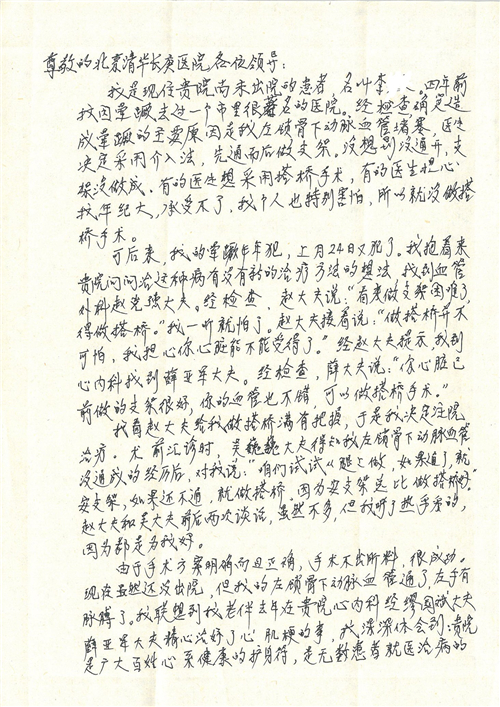 尊敬的北京清华长庚医院各位领导：
我是现住贵院尚未出院的患者，名叫李 。四年前
我因晕蹶去过一个市里很著名的医院。经检查确定造
成晕蹶的主要原因是我左锁骨下动脉血管堵塞。医生
决定采用介入法，先通而后做支架。没想到没通开，支
架没做成。有的医生想采用搭桥手术，有的医生担心
我年纪大，承受不了，我个人也特别害怕，所以就没做搭
桥手术。
可后来，我的晕蹶年年犯，上月24日又犯了。我抱着来
贵院问问治这种病有没有新的治疗方法的想法，找到血管
外科赵大夫。经检查，赵大夫说：“看来做支架困难了，
得做搭桥。”我一听就怕了。赵大夫接着说：“做搭桥并不
可怕，我担心你心脏能不能受得了。”经赵大夫提示，我到
心内科找到薛亚军大夫。经检查，薛大夫说：“你心脏已
前做的支架很好，你的血管也不错，可以做搭桥手术。”
我看赵大夫给我做搭桥满有把握，于是我决定住院
治疗。术前汇诊时，吴巍巍大夫得知我左锁骨下动脉血管
没通成的经历后，对我说：“咱们试试从腿上做，如果通了，就
安支架，如果还不通，就做搭桥。因为安支架总比做搭桥好。”
赵大夫和吴大夫前后两次谈话，虽然不多，但我听了热乎乎的，
因为都是为我好。
由于手术方案明确而且正确，手术不出所料，很成功。
现在虽然还没出院，但我的左锁骨下动脉血管通了，左手有
脉搏了。我联想到我老伴去年在贵院心内科经缪国斌大夫
薛亚军大夫精心治好了心肌梗的事，我深深体会到：贵院
是广大百姓心系健康的护身符，是无数患者就医治病的